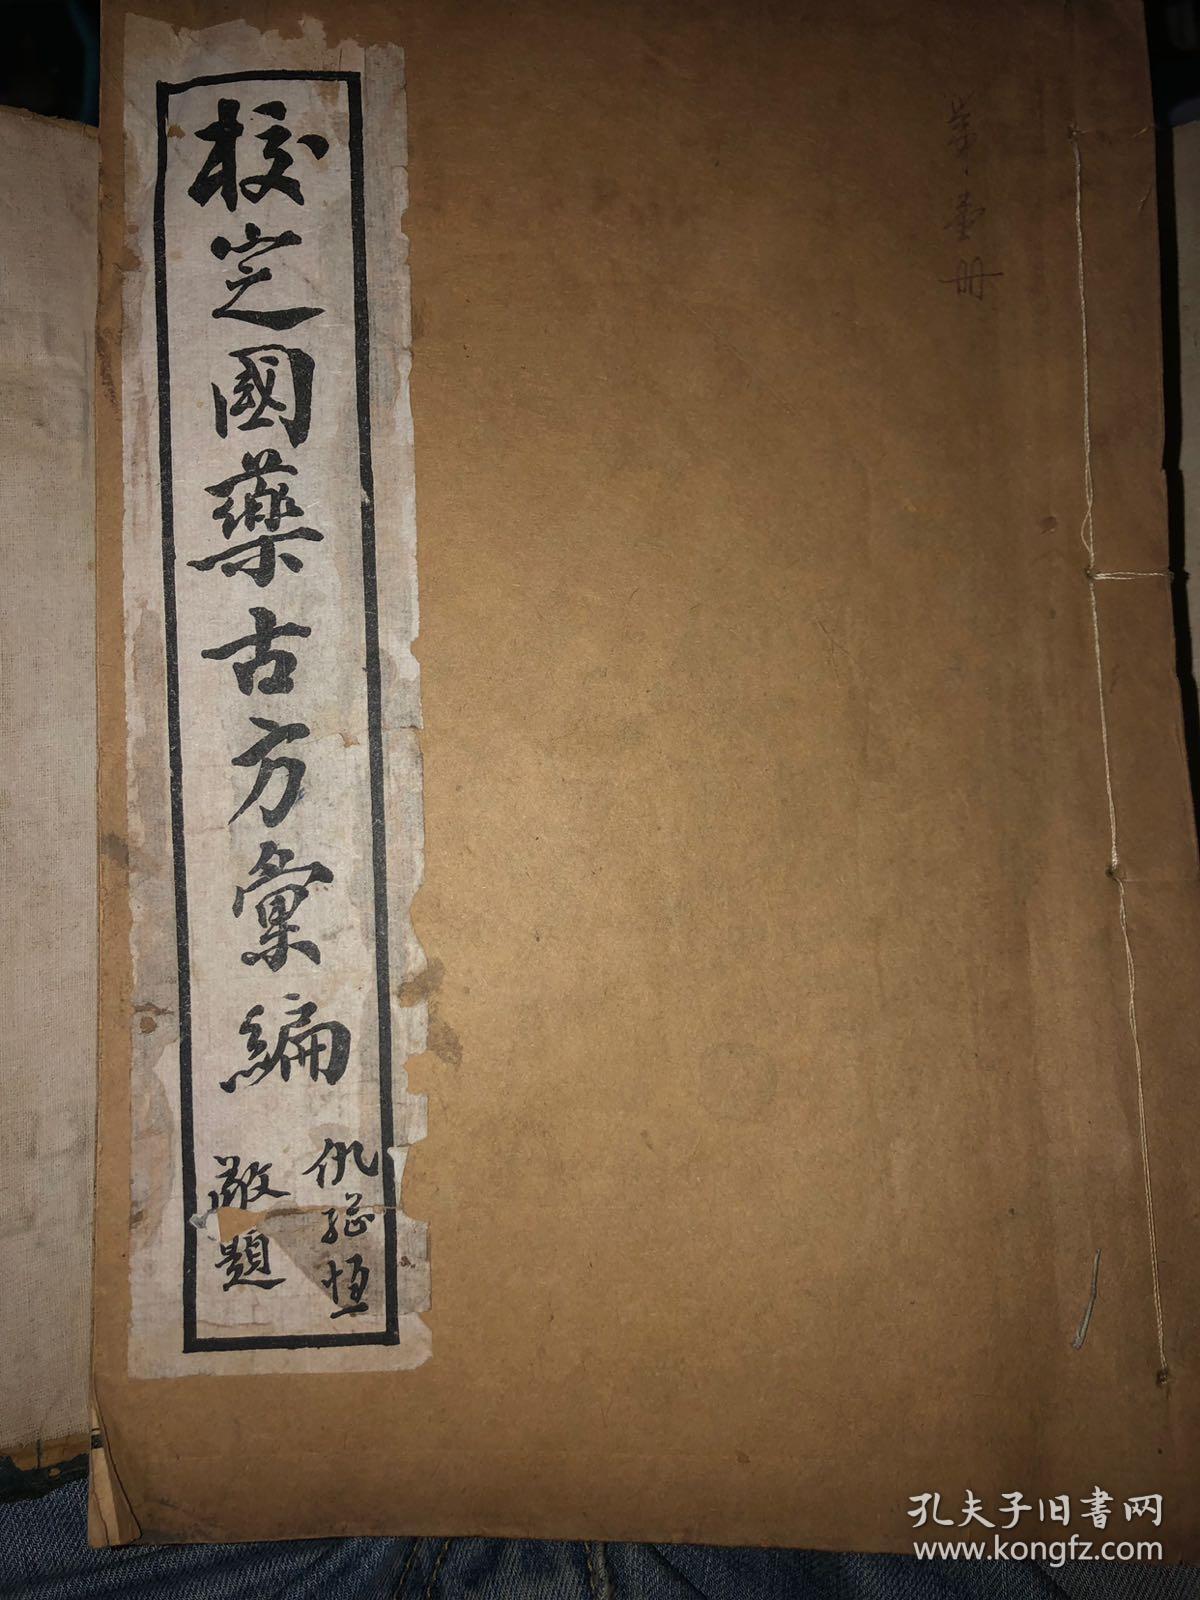 第壹册
校定國藥古方彙編
仇繼恒
敬題
孔夫子旧書网
www.kongfz.com